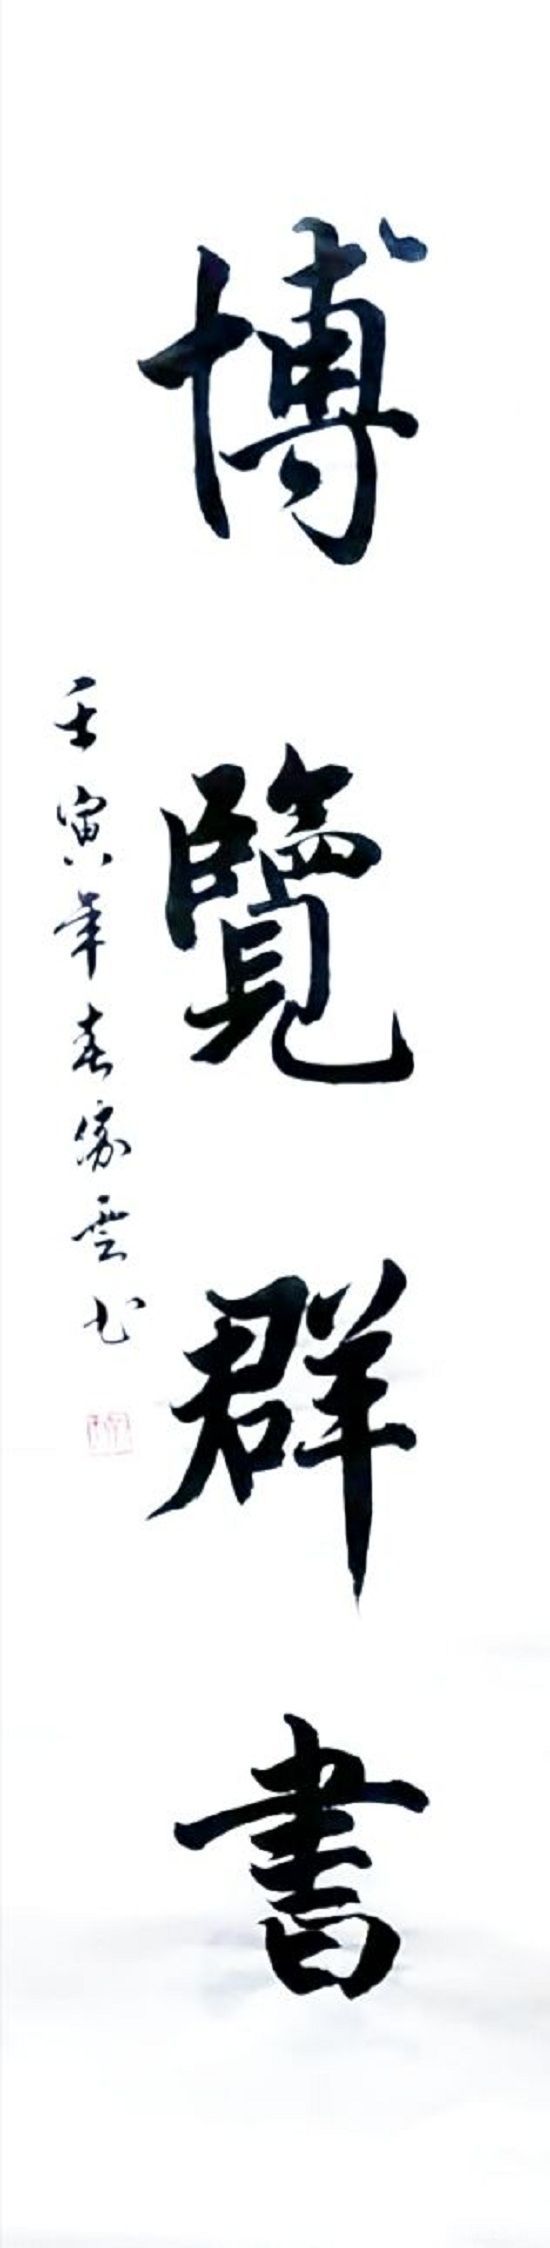 博覽群書
壬寅年春家雲书